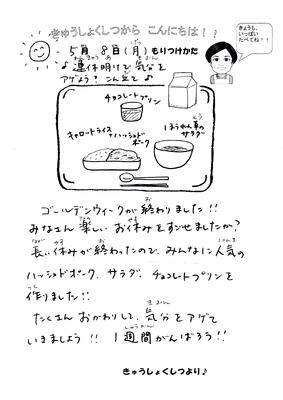 きゅうしょくしつから こんにちは！！
きょうも、
いっぱい
たべてね！！
5月 8日(月) もりつけかた
♪連休明けで気分を
アゲよう？こん立て♪
チョコレートプリン
キャロットライス
ハッシュド
ポーク
ほうれん草の
サラダ
ゴールデンウィークが終わりました!!
みなさん楽しいお休みをすごせましたか？
長い休みが終わったので、みんなに人気の
ハッシュドポーク、サラダ、チョコレートプリンを
作りました!!
たくさんおかわりして、気分をアゲて
いきましょう!! 1週間がんばろう!!
きゅうしょくしつより♪